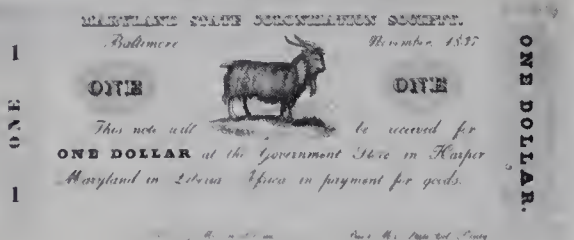 MARYLAND STATE COLONIZATION SOCIETY.
Baltimore November 1837
1 ONE 1
ONE ONE
This note will be received for
ONE DOLLAR at the Government Store in Harper
Maryland in Liberia Africa in payment for goods.
ONE DOLLAR.